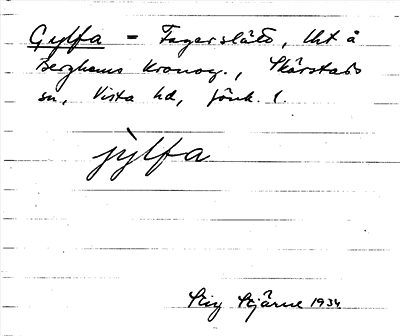 Gylfa = Fagerslätt, lht å
Berghems Kronog., Skärstads
sn, Vista hd, Jönk. l.
jỳlfa
Stig Stjärne 1934